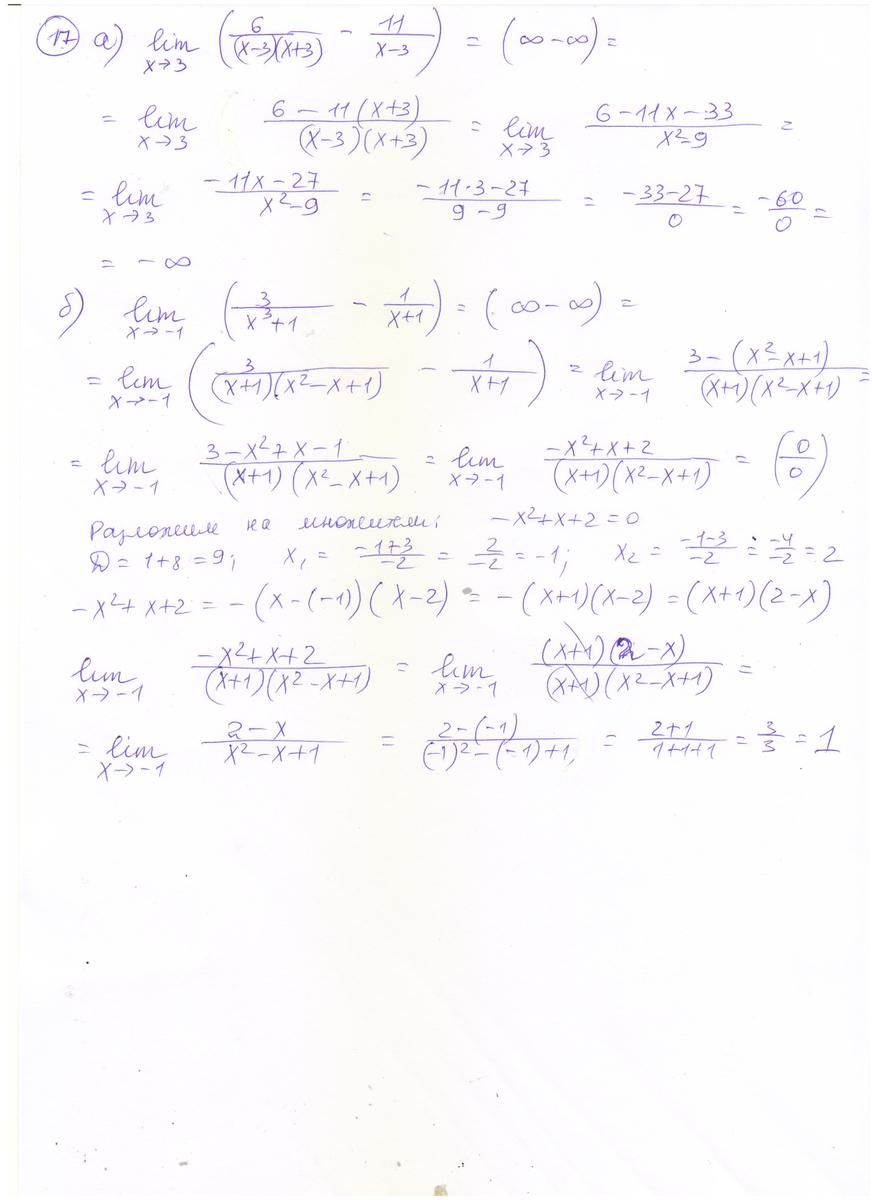 17 а) lim x→3 (6/((x-3)(x+3)) - 11/(x-3)) = (∞-∞) =
= lim x→3 (6-11(x+3))/((x-3)(x+3)) = lim x→3 (6-11x-33)/(x²-9) =
= lim x→3 (-11x-27)/(x²-9) = (-11·3-27)/(9-9) = (-33-27)/0 = -60/0 =
= -∞
б) lim x→-1 (3/(x³+1) - 1/(x+1)) = (∞-∞) =
= lim x→-1 (3/((x+1)(x²-x+1)) - 1/(x+1)) = lim x→-1 (3-(x²-x+1))/((x+1)(x²-x+1)) =
= lim x→-1 (3-x²+x-1)/((x+1)(x²-x+1)) = lim x→-1 (-x²+x+2)/((x+1)(x²-x+1)) = (0/0)
Разложим на множители: -x²+x+2=0
D=1+8=9; x₁ = (-1+3)/(-2) = 2/(-2) = -1; x₂ = (-1-3)/(-2) = -4/(-2) = 2
-x²+x+2 = -(x-(-1))(x-2) = -(x+1)(x-2) = (x+1)(2-x)
lim x→-1 (-x²+x+2)/((x+1)(x²-x+1)) = lim x→-1 ((x+1)(2-x))/((x+1)(x²-x+1)) =
= lim x→-1 (2-x)/(x²-x+1) = (2-(-1))/((-1)²-(-1)+1) = (2+1)/(1+1+1) = 3/3 = 1